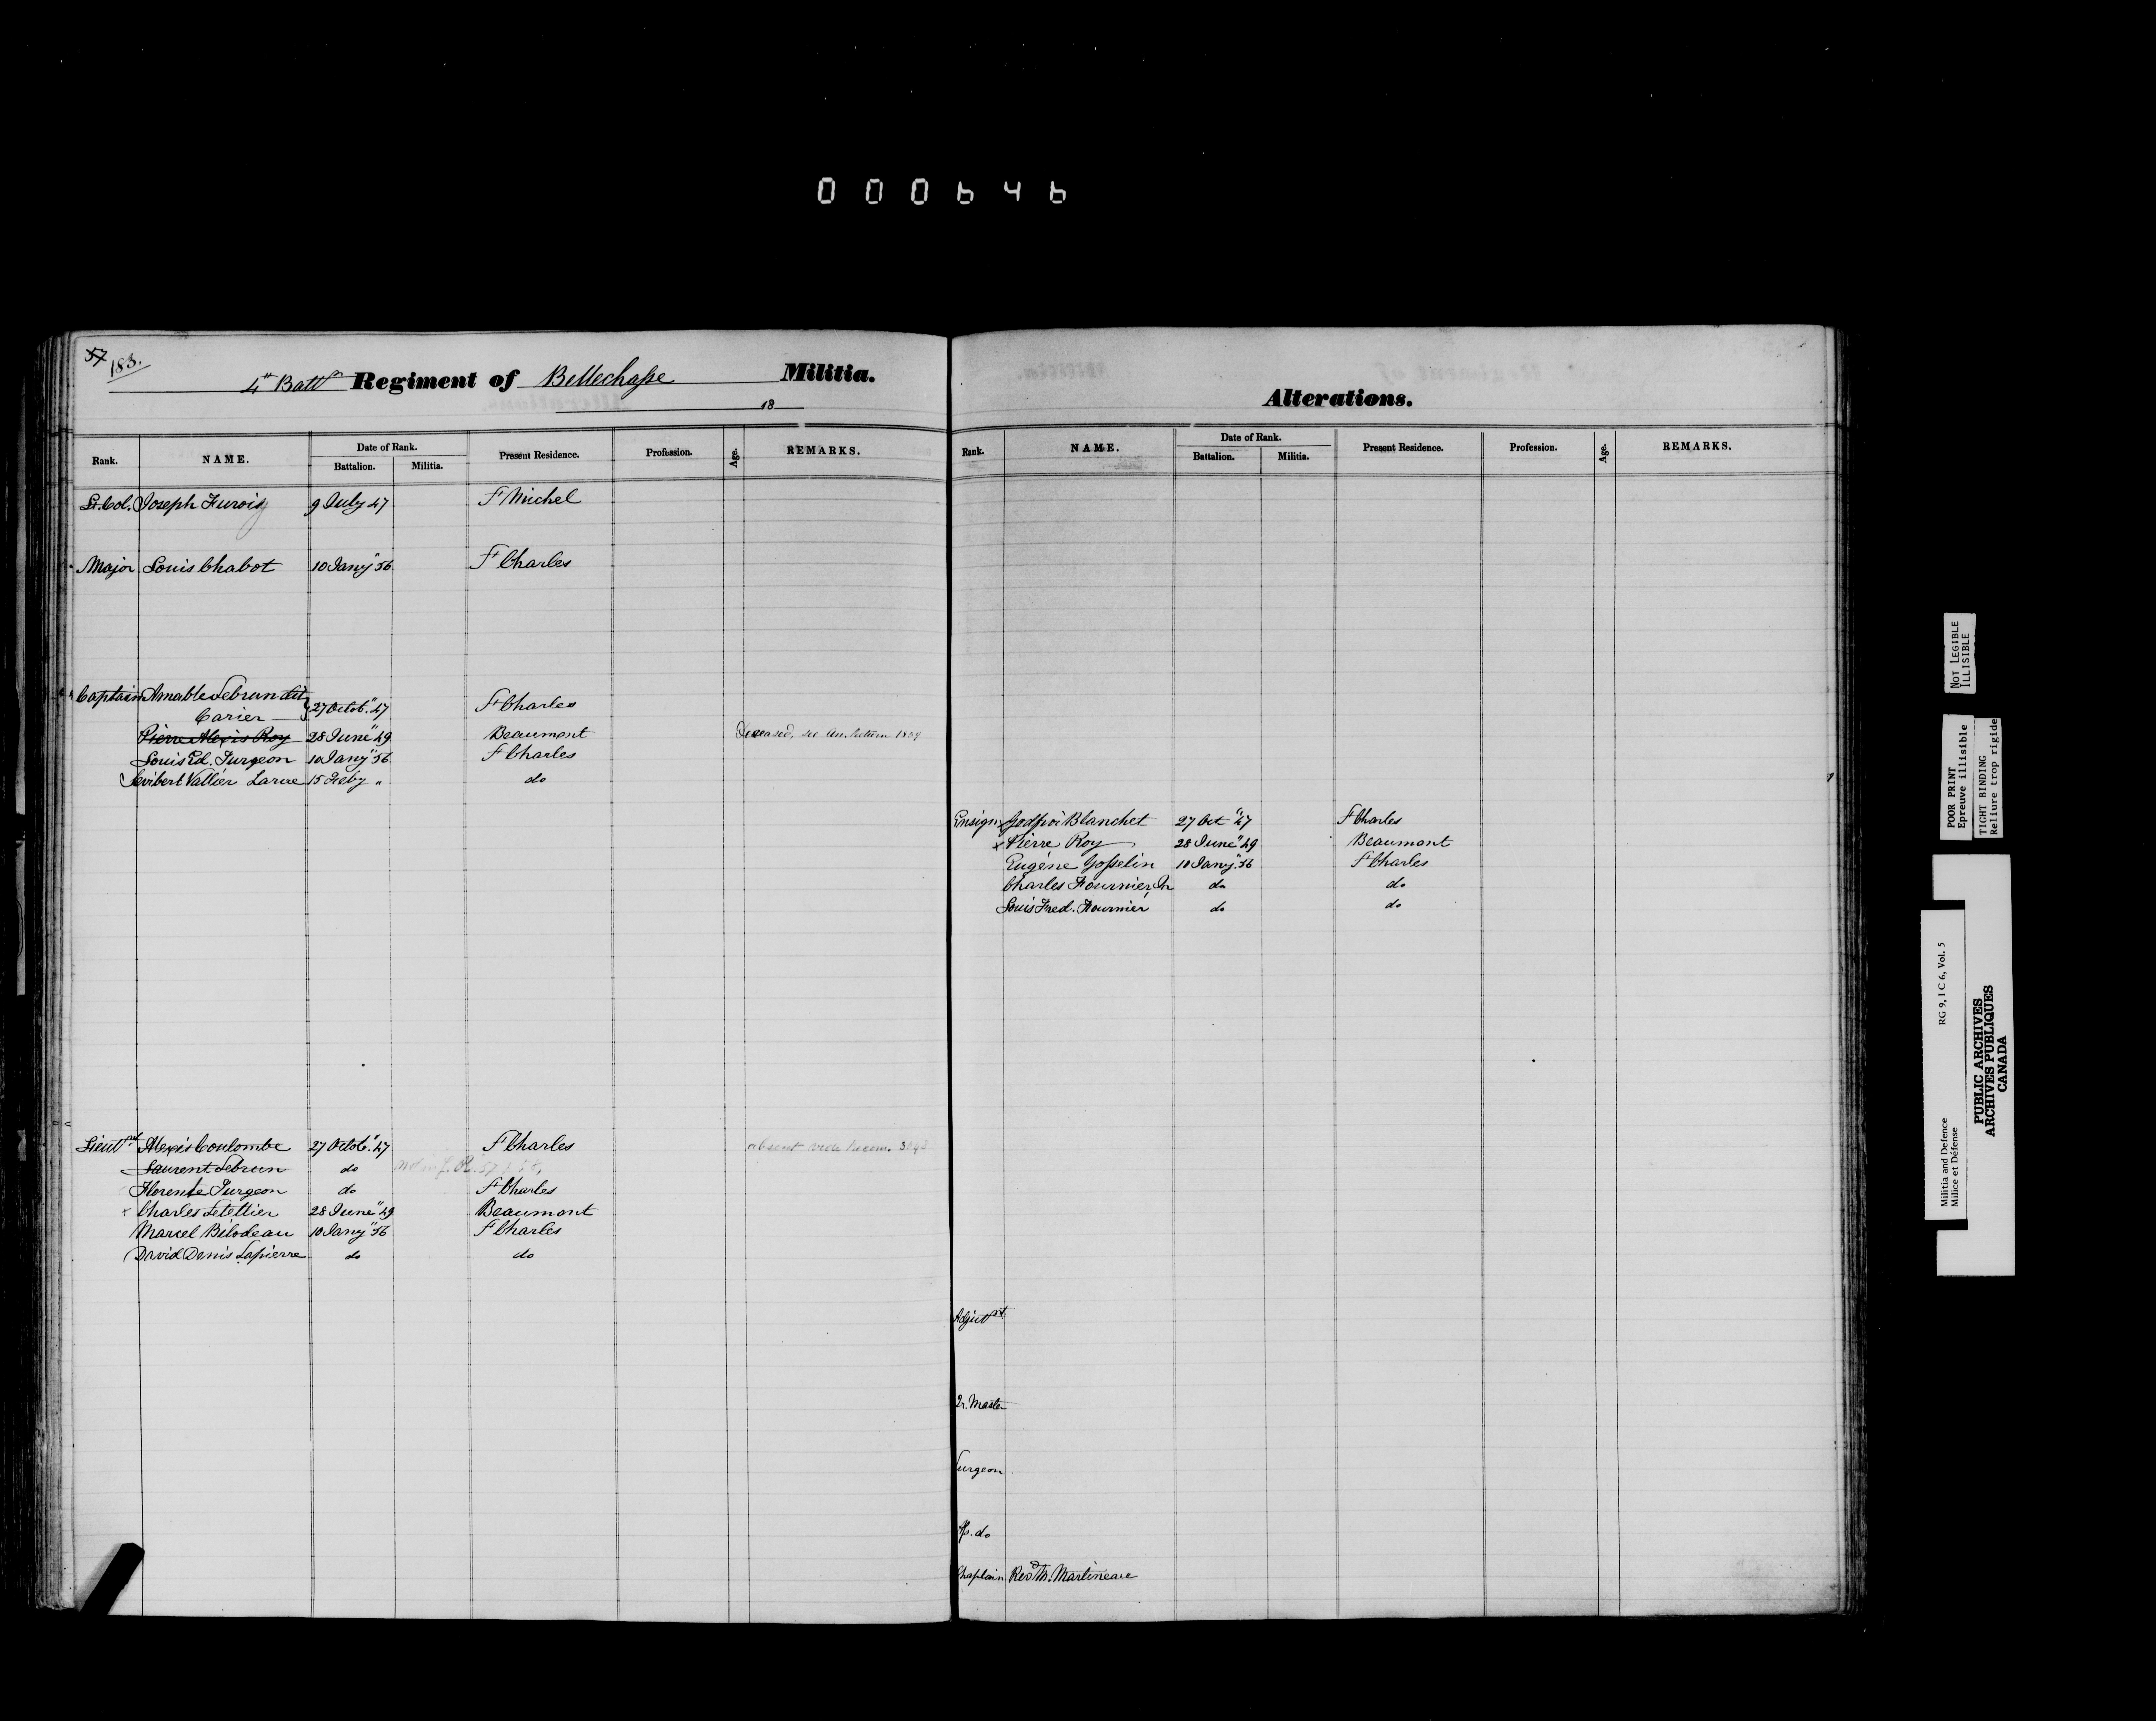 000646
57 183.
4th Battn Regiment of Bellechasse Militia.
18
Rank. NAME. Date of Rank. Present Residence. Profession. Age. REMARKS.
Battalion. Militia.
Lt. Col. Joseph Turois 9 July 47 St Michel
Major Louis Chabot 10 Jany "56 St Charles
Captain Amable Lebrun dit
Carier 27 Octob. "47 St Charles
Pierre Alexis Roy 28 June "49 Beaumont Deceased, see An. Return 1859
Louis Ed. Turgeon 10 Jany "56 St Charles
Sevibert Vallier Larue 15 Feby " do
Lieutnt Alexis Coulombe 27 Octob. "47 St Charles absent vide
Laurent Lebrun do
Florente Turgeon do St Charles
x Charles Letellier 28 June "49 Beaumont
Marcel Bilodeau 10 Jany "56 St Charles
David Denis Lapierre do do
Alterations.
Rank. NAME. Date of Rank. Present Residence. Profession. Age. REMARKS.
Battalion. Militia.
Ensign x Godfroi Blanchet 27 Oct "47 St Charles
x Pierre Roy 28 June "49 Beaumont
Eugène Gosselin 10 Jany "56 St Charles
Charles Fournier, Jr do do
Louis Fred. Fournier do do
Adjutnt
Qr. Master
Surgeon
As. do
Chaplain Revd M. Martineau
NOT LEGIBLE
ILLISIBLE
POOR PRINT
Epreuve illisible
TIGHT BINDING
Reliure trop rigide
Militia and Defence RG 9, I C 6, Vol. 5
Milice et Défense
PUBLIC ARCHIVES
ARCHIVES PUBLIQUES
CANADA